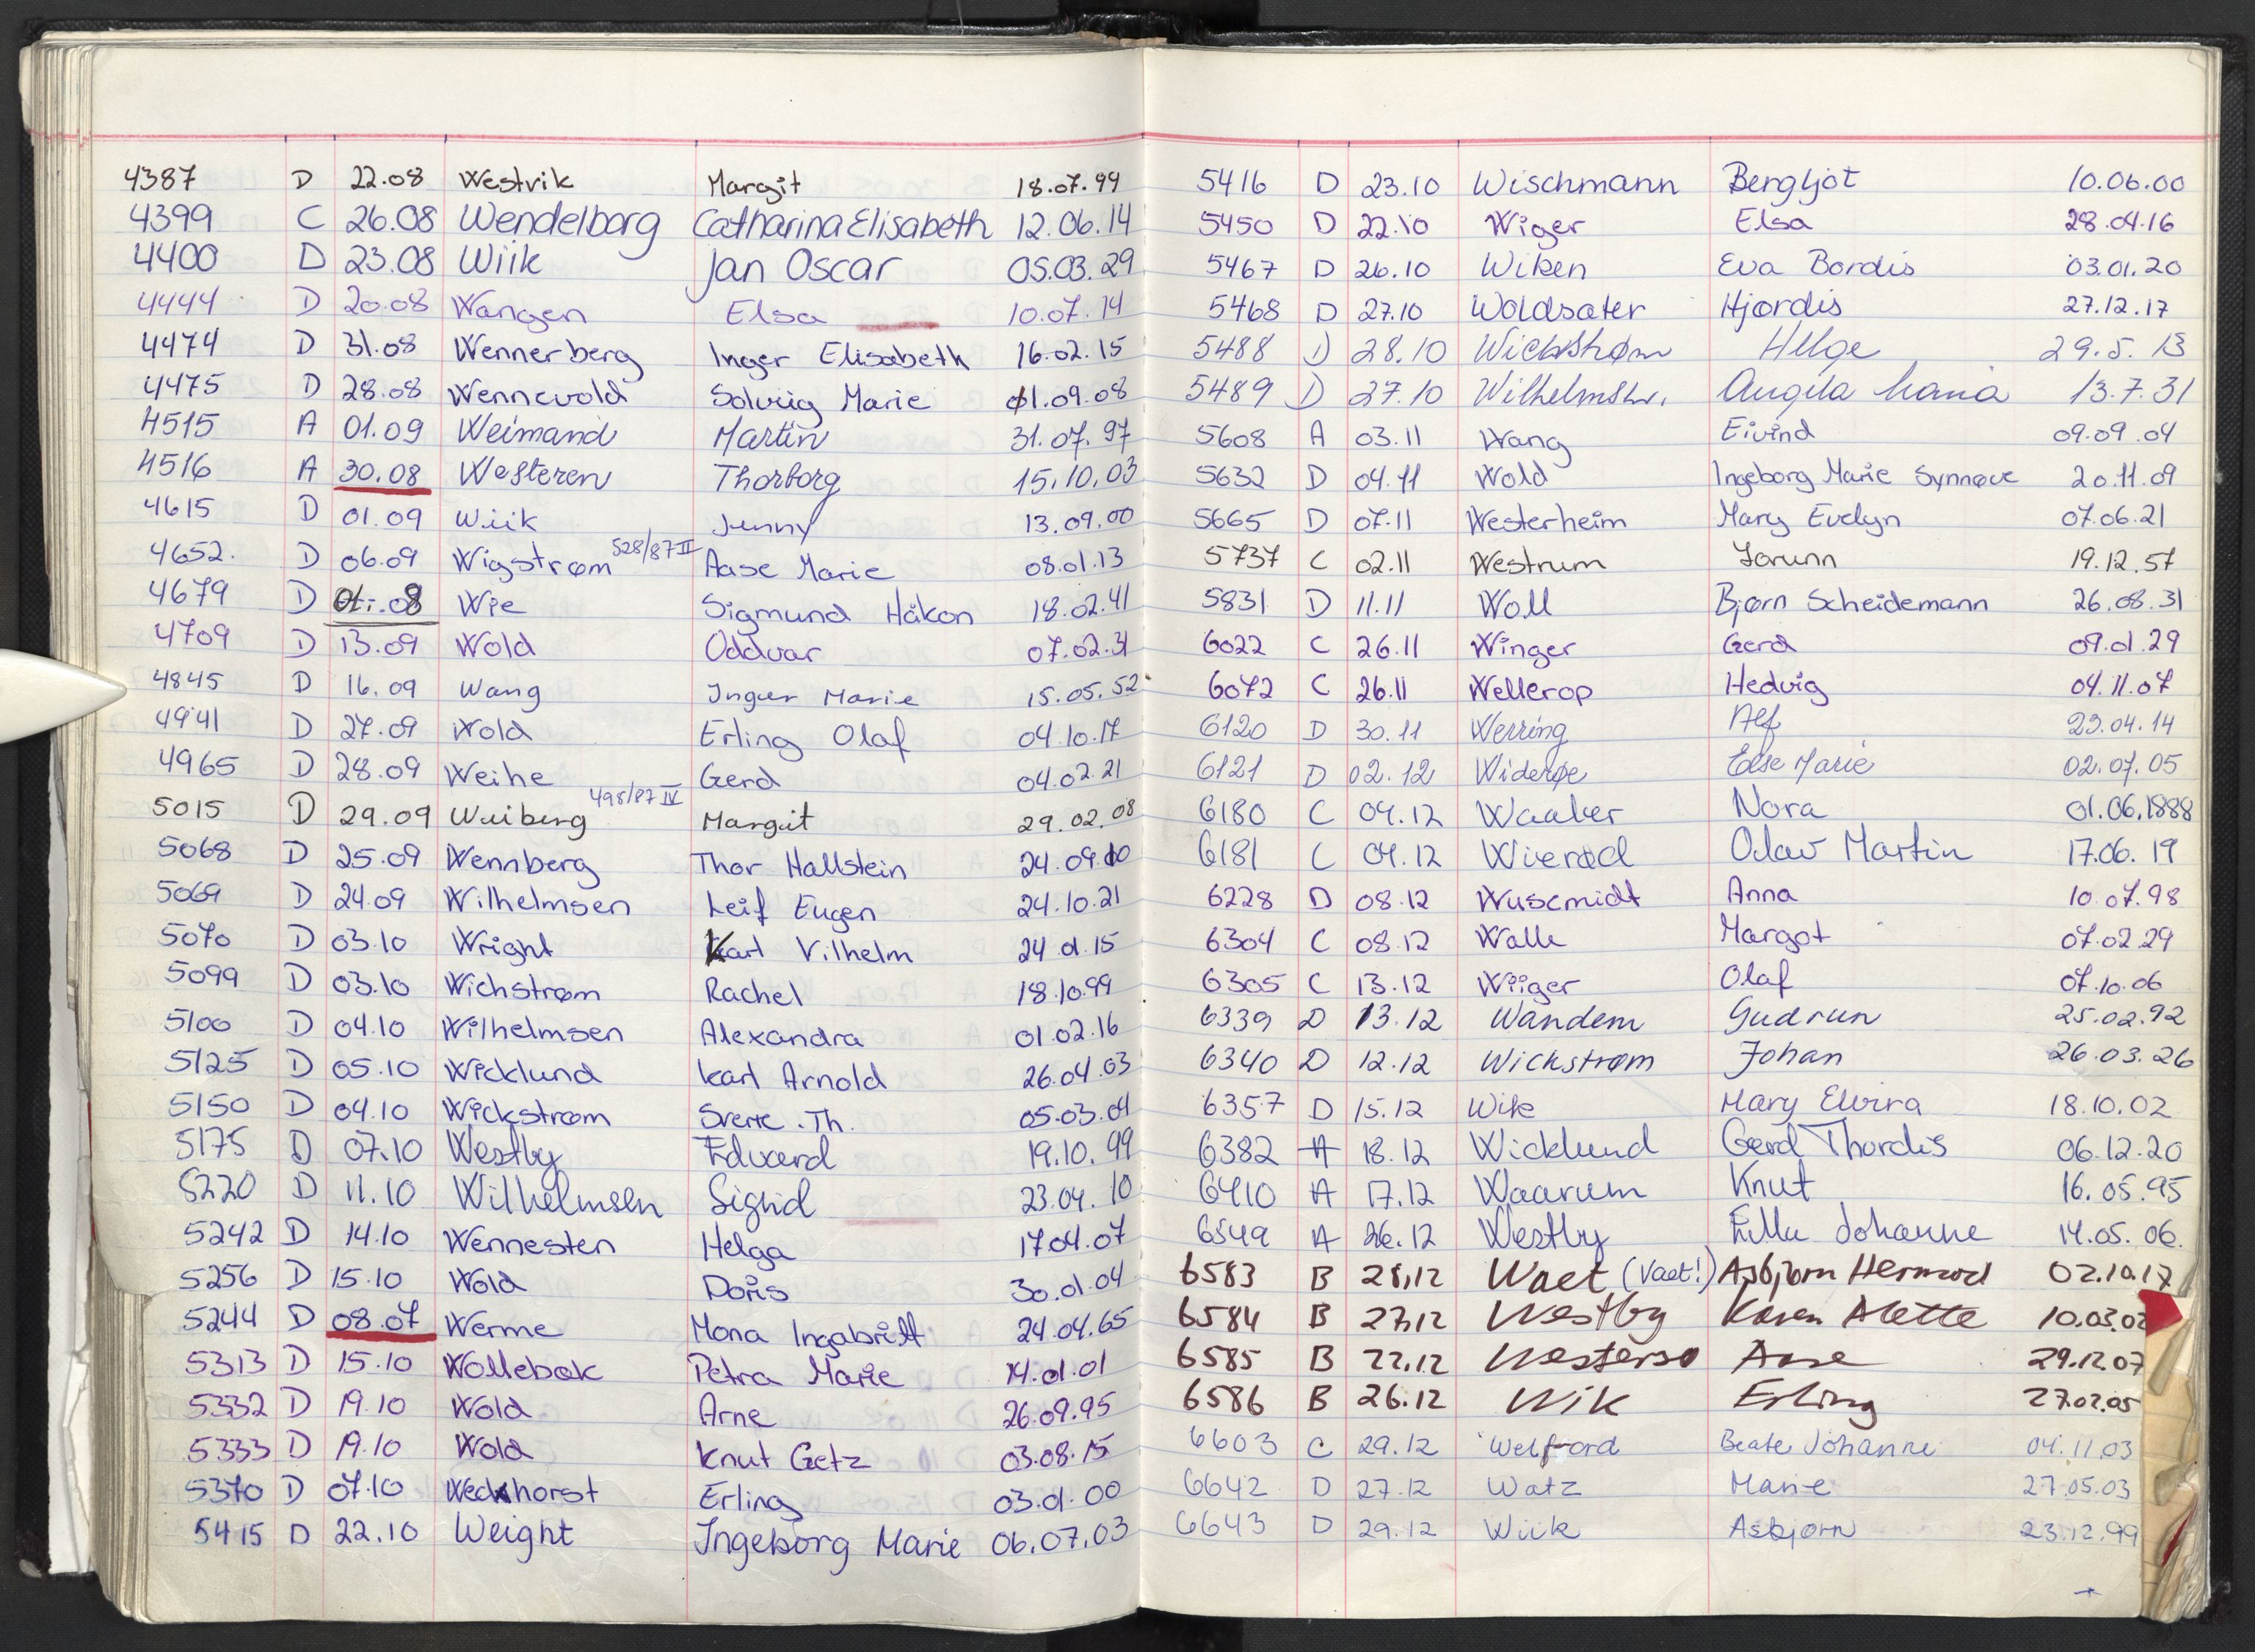 4387 D 22.08 Westvik Margit 18.07.99
4399 C 26.08 Wendelborg Catharina Elisabeth 12.06.14
4400 D 23.08 Wiik Jan Oscar 05.03.29
4444 D 20.08 Wangen Elsa 10.07.14
4474 D 31.08 Wennerberg Inger Elisabeth 16.02.15
4475 D 28.08 Wennevold Solveig Marie 01.09.08
4515 A 01.09 Weimand Martin 31.07.97
4516 A 30.08 Westeren Thorborg 15.10.03
4615 D 01.09 Wiik Jenny 13.09.00
4652. D 06.09 Wigstrøm 528/87 II Aase Marie 08.01.13
4679 D Wie Sigmund Håkon 18.02.41
4709 D 13.09 Wold Oddvar 07.02.31
4845 D 16.09 Wang Inger Marie 15.05.52
4941 D 27.09 Wold Erling Olaf 04.10.17
4965 D 28.09 Weihe Gerd 04.02.21
5015 D 29.09 Weiberg 498/87 IV Margit 29.02.08
5068 D 25.09 Wennberg Thor Hallstein 24.09.10
5069 D 24.09 Wilhelmsen Leif Eugen 24.10.21
5070 D 03.10 Wright Karl Vilhelm 24.01.15
5099 D 03.10 Wichstrøm Rachel 18.10.99
5100 D 04.10 Wilhelmsen Alexandra 01.02.16
5125 D 05.10 Wicklund Karl Arnold 26.04.03
5150 D 04.10 Wickstrøm Sverre .Th. 05.03.01
5175 D 07.10 Westby Edvard 19.10.99
5220 D 11.10 Wilhelmsen Sigrid 23.04.10
5242 D 14.10 Wennesten Helga 17.04.07
5256 D 15.10 Wold Doris 30.01.04
5244 D 08.07 Werme Mona Ingabritt 24.04.65
5313 D 15.10 Wollebæk Petra Marie 14.01.01
5332 D 19.10 Wold Arne 26.09.95
5333 D 19.10 Wold Knut Getz 03.08.15
5370 D 07.10 Weckhorst Erling 03.01.00
5415 D 22.10 Weight Ingeborg Marie 06.07.03
5416 D 23.10 Wischmann Bergljot 10.06.00
5450 D 22.10 Wiger Elsa 28.04.16
5467 D 26.10 Wiken Eva Bordis 03.01.20
5468 D 27.10 Woldsæter Hjørdis 27.12.17
5488 D 28.10 Wickstrøm Helge 29.5.13
5489 D 27.10 Wilhelmsen Angela Maria 13.7.31
5608 A 03.11 Wang Eivind 09.09.04
5632 D 04.11 Wold Ingeborg Marie Synnøve 20.11.09
5665 D 07.11 Westerheim Mary Evelyn 07.06.21
5737 C 02.11 Westrum Jorunn 19.12.57
5831 D 11.11 Woll Bjørn Scheidemann 26.08.31
6022 C 26.11 Winger Gerd 09.01.29
6072 C 26.11 Wellerop Hedvig 04.11.07
6120 D 30.11 Werring Alf 23.04.14
6121 D 02.12 Widerøe Else Marie 02.07.05
6180 C 04.12 Waaler Nora 01.06.1888
6181 C 04.12 Wierød Olav Martin 17.06.19
6228 D 08.12 Wuscmidt Anna 10.07.98
6304 C 08.12 Walle Margot 07.02.29
6305 C 13.12 Wiiger Olaf 07.10.06
6339 D 13.12 Wandem Gudrun 25.02.92
6340 D 12.12 Wickstrøm Johan 26.03.26
6357 D 15.12 Wik Mary Elvira 18.10.02
6382 A 18.12 Wicklund Gerd Thordis 06.12.20
6410 A 17.12 Waarum Knut 16.05.95
6549 A 26.12 Westby Ella Johanne 14.05.06.
6583 B 28.12 Waet (Vaet!) Asbjørn Hermod 02.10.17
6584 B 27.12 Westby Karen Alette 10.03.02
6585 B 22.12 Westersø Aase 29.12.07
6586 B 26.12 Wik Erling 27.02.05
6603 C 29.12 Welford Beate Johanne 04.11.03
6642 D 27.12 Watz Marie 27.05.03
6643 D 29.12 Wiik Asbjørn 23.12.99